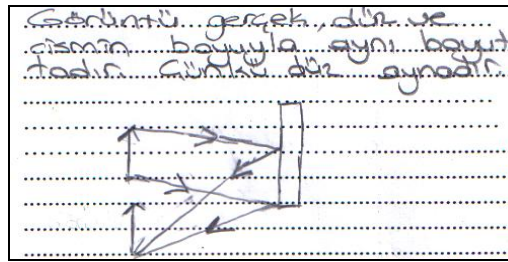 Görüntü gerçek, düz ve
cismin boyuyla aynı boyut
tadır. Çünkü düz aynadır.